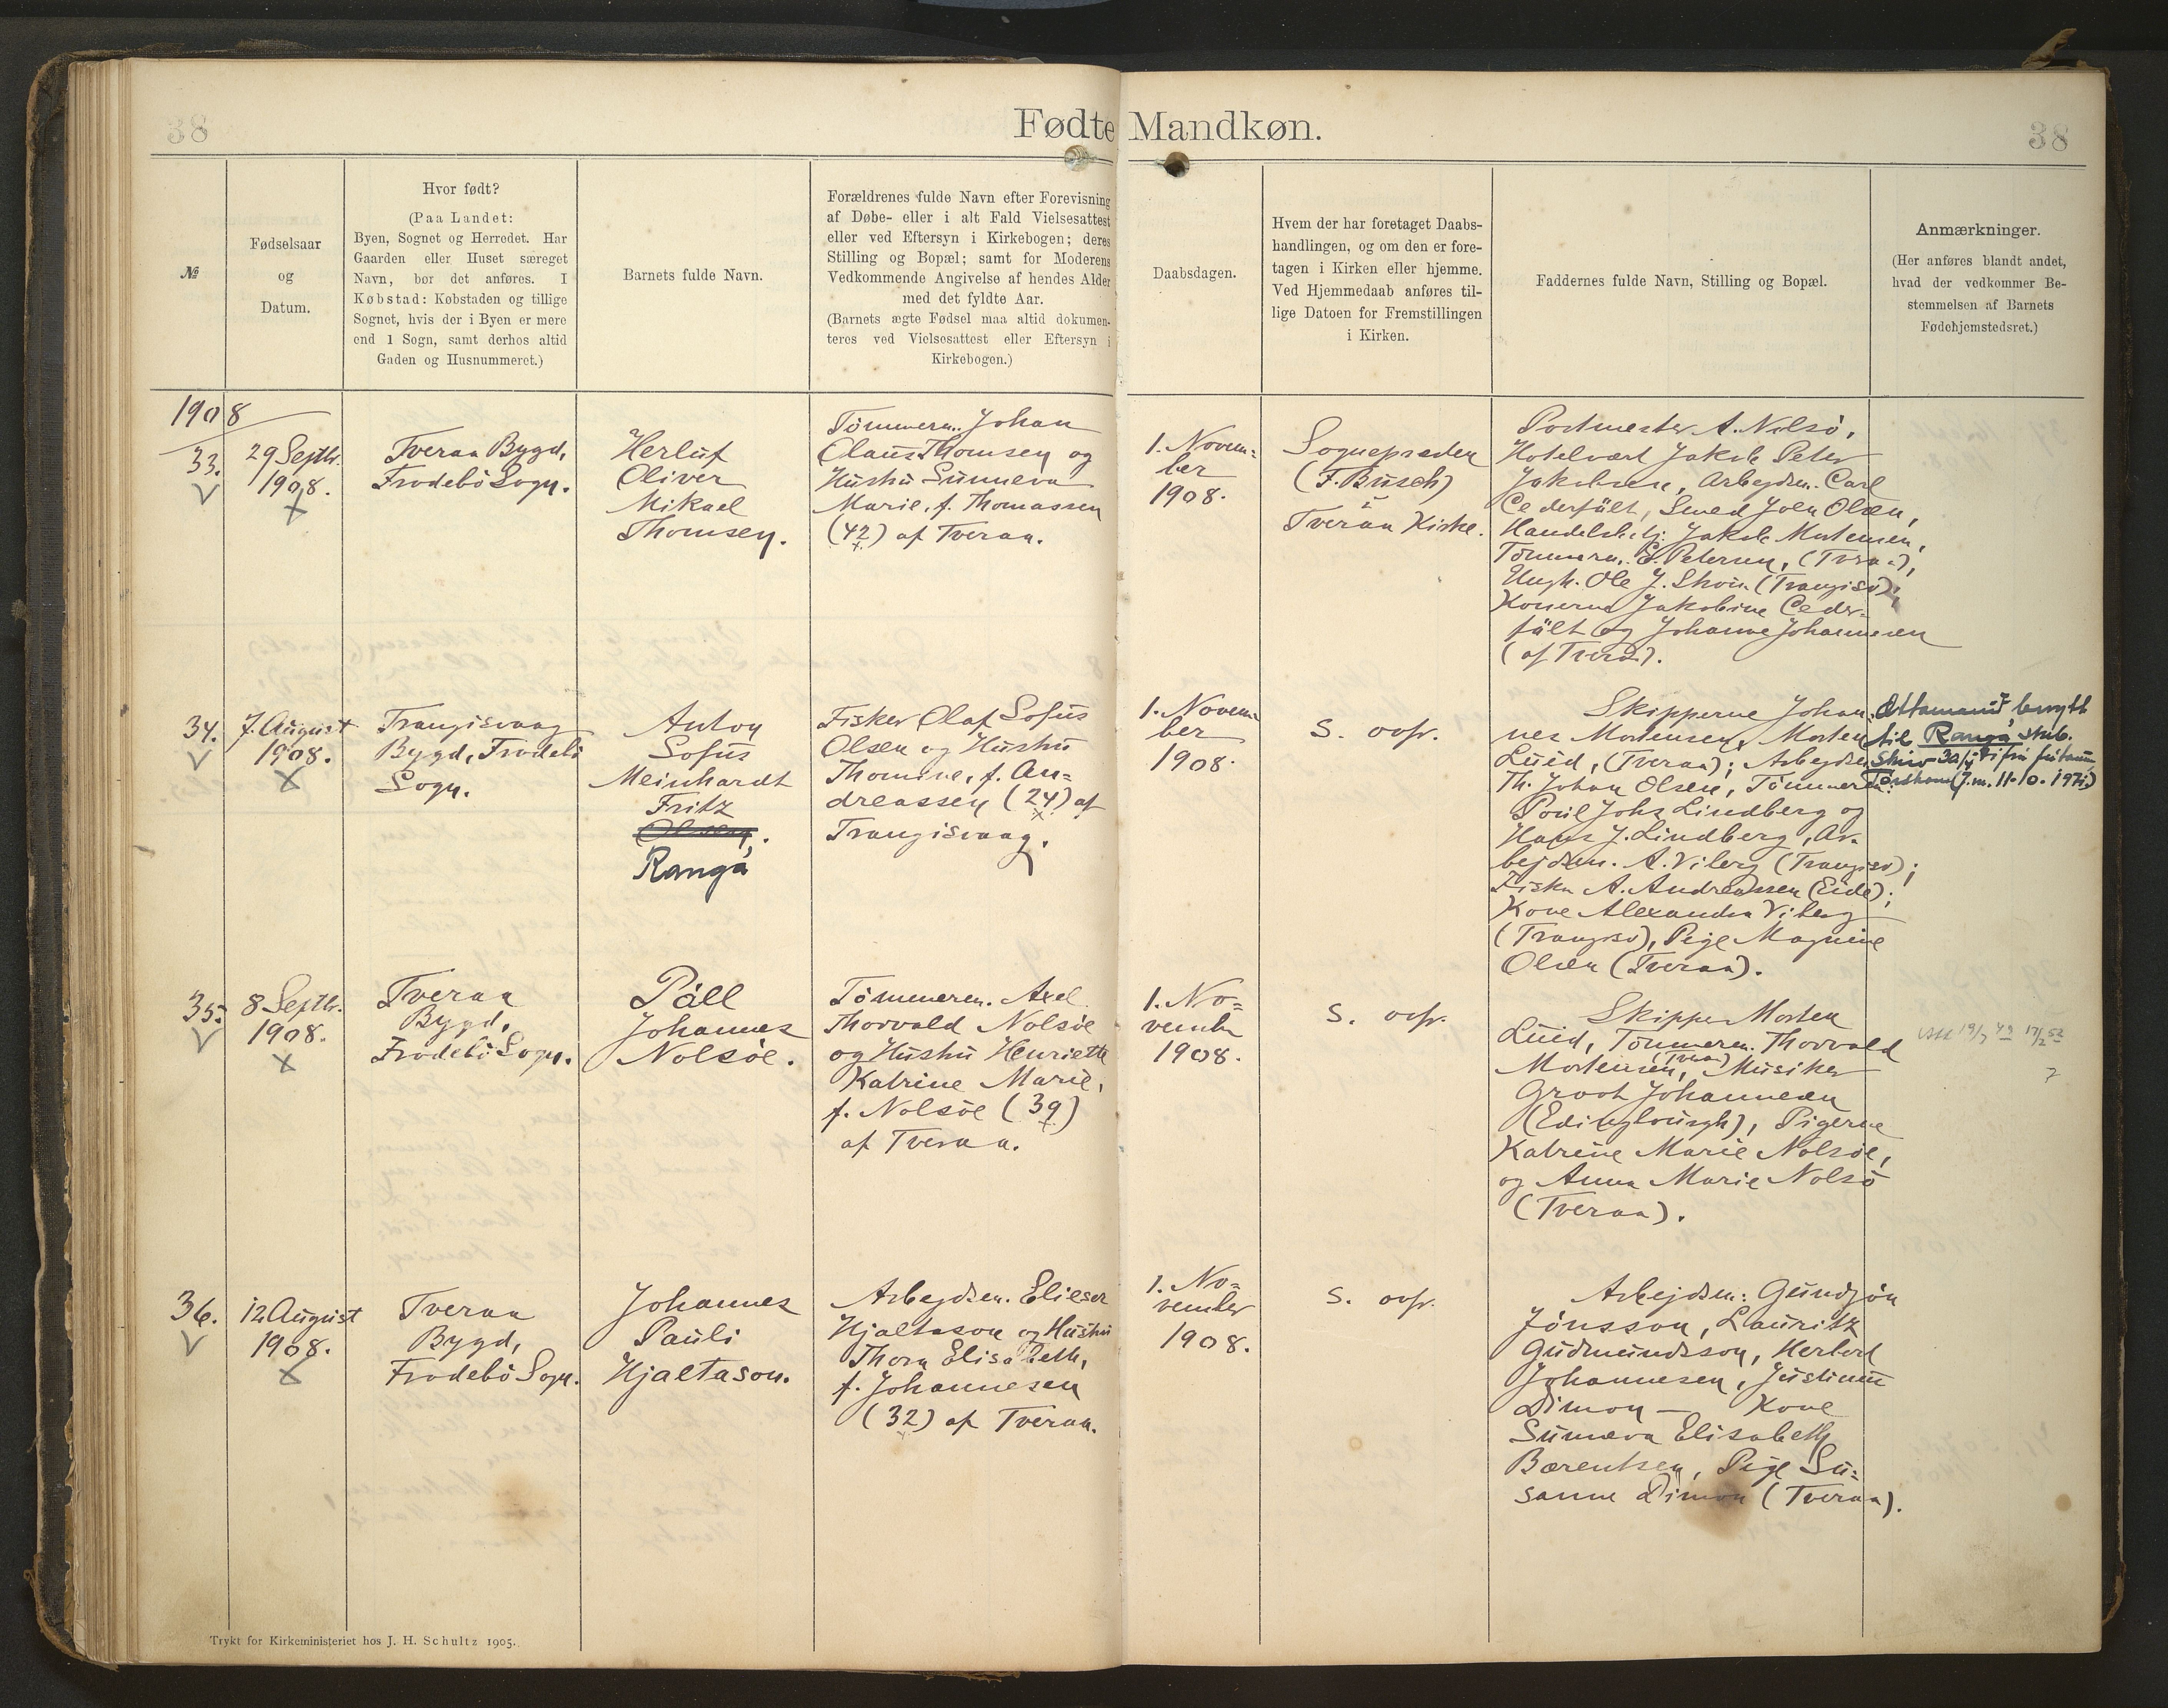 38
Fødte Mandkøn.
38
№
Fødselsaar
og
Datum.
Hvor født?
(Paa Landet:
Byen, Sognet og Herredet. Har
Gaarden eller Huset særeget
Navn, bør det anføres. I
Købstad: Købstaden og tillige
Sognet, hvis der i Byen er mere
end 1 Sogn, samt derhos altid
Gaden og Husnummeret.)
Barnets fulde Navn.
Forældrenes fulde Navn efter Forevisning
af Døbe- eller i alt Fald Vielsesattest
eller ved Eftersyn i Kirkebogen; deres
Stilling og Bopæl; samt for Moderens
Vedkommende Angivelse af hendes Alder
med det fyldte Aar.
(Barnets ægte Fødsel maa altid dokumen-
teres ved Vielsesattest eller Eftersyn i
Kirkebogen.)
Daabsdagen.
Hvem der har foretaget Daabs-
handlingen, og om den er fore-
tagen i Kirken eller hjemme.
Ved Hjemmedaab anføres til-
lige Datoen for Fremstillingen
i Kirken.
Faddernes fulde Navn, Stilling og Bopæl.
Anmærkninger.
(Her anføres blandt andet,
hvad der vedkommer Be-
stemmelsen af Barnets
Fødehjemstedsret.)
1908
33.
29 Septbr.
1908.
Tveraa Bygd,
Frodebö Sogn.
Herluf
Oliver
Mikael
Thomsen.
Tömmerm. Johan
Claus Thomsen og
Hustru Sunneva
Marie, f. Thomassen
(42) af Tveraa.
1. Novem=
ber
1908.
Sognepræsten
(F. Busch)
i
Tveraa Kirke.
Postmester A. Nolsö,
Hotelvært Jakob Peter
Jakobsen, Arbejdsm. Carl
Cederfält, Smed Joen Olsen,
Handelsbetj. Jakob Mortensen,
Tömmerm. Petersen, (Tveraa),
Ungk. Ole J. (Trangisv),
Konerne Jakobine Ceder-
fält og Johanne Johannesen
(af Tveraa).
34.
7. August
1908.
Trangisvaag
Bygd, Frodebö
Sogn.
Anton
Sofus
Meinhardt
Fritz
Olsen.
Rangá
Fisker Olaf Sofus
Olsen og Hustru
Thomine, f. An=
dreassen (24) af
Trangisvaag.
1. Novem
ber
1908.
S. ovfr.
Skipperne Johan=
nes Mortensen, Morten
Luid, (Tveraa); Arbejdsm.
Th. Johan Olsen, Tömmerm:
Poul Johs Lindberg og
Hans J. Lindberg, Ar-
bejdsm. A. Viberg (Trangisv);
Fisker A. Andreassen (Eide);
Kone Alexandra Viberg
(Trangisv), Pige Magnine
Olsen (Tveraa).
Ættarnavnið broytt
til Rangá
Tórshavn 11-10-1971)
35.
8 Septbr.
1908.
Tveraa
Bygd,
Frodebö Sogn.
Páll
Johannes
Nolsöe.
Tömmerm. Axel
Thorvald Nolsöe
og Hustru Henriette
Katrine Marie,
f. Nolsöe (39)
af Tveraa.
1. No=
vember
1908.
S. ovfr.
Skipper Morten
Luid, Tömmerm. Thorvald
Mortensen, (Tveraa) Musiker
Groot Johannesen
(Edingbourgh), Pigerne
Katrine Marie Nolsöe,
og Anna Marie Nolsö
(Tveraa).
7
36.
12 August
1908.
Tveraa
Bygd,
Frodebö Sogn.
Johannes
Pauli
Hjaltason.
Arbejdsm. Elieser
Hjaltason og Hustru
Thora Elisabeth,
f. Johannesen
(32) af Tveraa.
1. No=
vember
1908.
S. ovfr.
Arbejdsm: Gundjón
Jónsson, Lauritz
Gudmundsson, Herbert
Johannesen, Justinus
Dimon — Kone
Sunneva Elisabeth
Bærentsen, Pige Su=
sanne Dimon (Tveraa).
Trykt for Kirkeministeriet hos J. H. Schultz 1905.